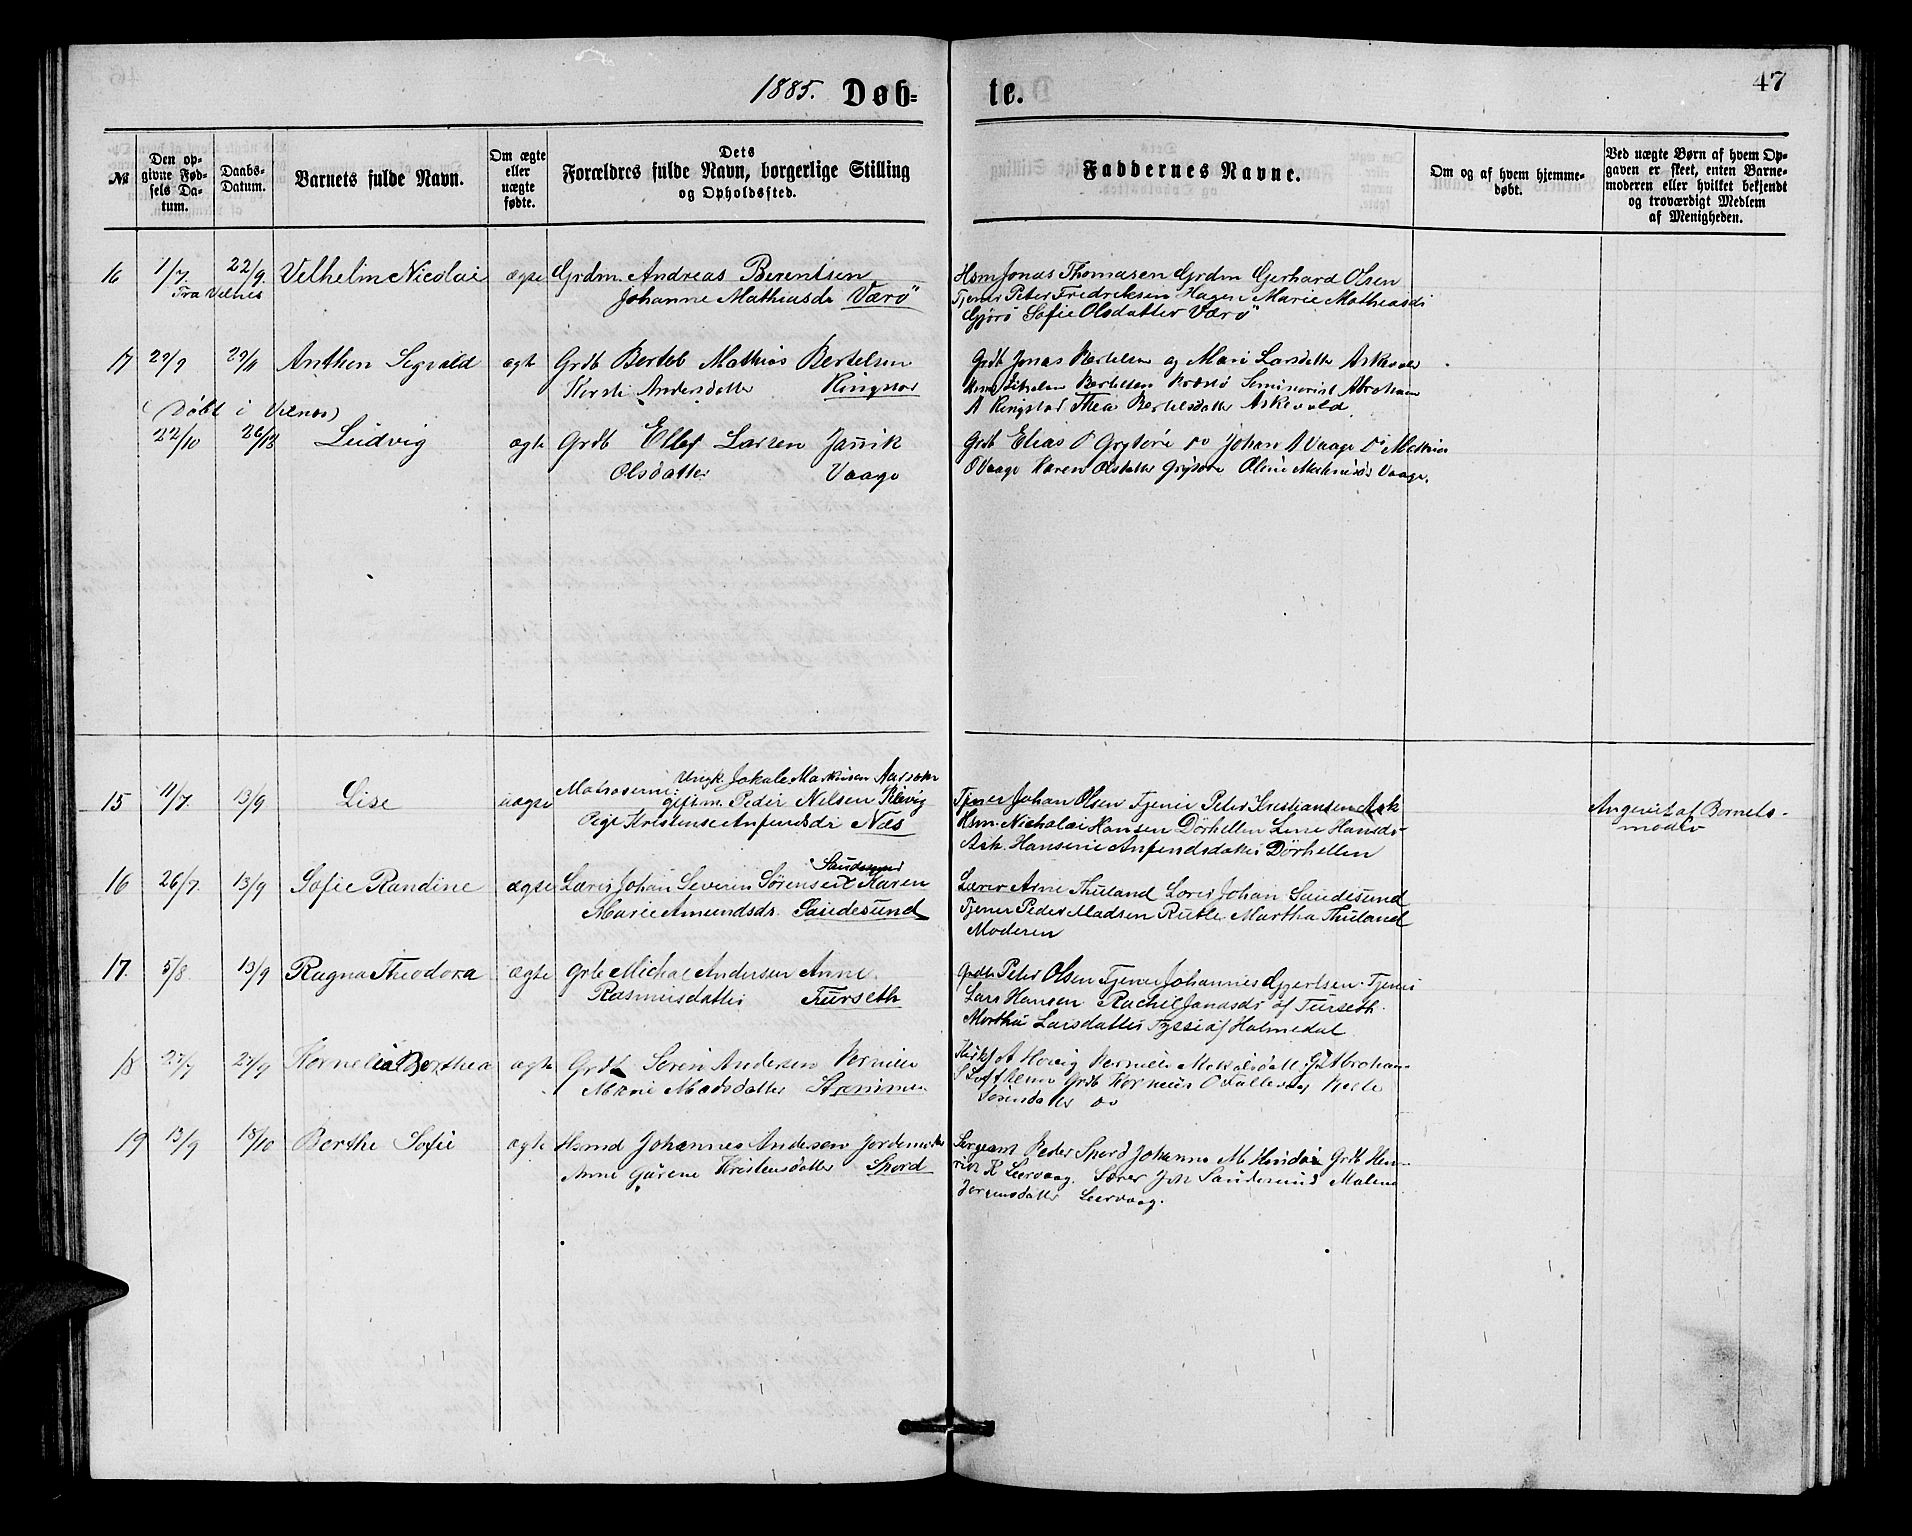 1885. Døb=
te.
47
№
Den op-
givne Fød-
sels Da-
tum.
Daabs-
Datum.
Barnets fulde Navn.
Om ægte
eller
uægte
fødte.
Dets
Forældres fulde Navn, borgerlige Stilling
og Opholdssted.
Faddernes Navne.
Om og af hvem hjemme-
døbt.
Ved uægte Børn af hvem Op-
gaven er skeet, enten Barne-
moderen eller hvilket bekjendt
og troværdigt Medlem
af Menigheden.
16 1/7. 22/9. Vilhelm Nicolai ægte Grdm. Andreas Berentsen
Fra Vilnes
Johanne Mathiasdr Værø
Hsm Jonas Thomasen Grdm Gerhard Olsen
Tjener Peter Fredriksen Hagen Marie Mathiasdr
Gjörö Sofie Olsdatter Værö
17 29/9 29/11 Anthon Sigvald ægte Grdb Bertel Mathias Bertelsen
Kirsti Andersdatter Ringstad
Grdb Jonas Bertelsen og Mari Larsdatter Askevold
Bertelsen Seminarist Abraham
A Ringstad Thea Bertelsdatter Askevold.
(Döbt i Vilnes)
22/10 26/12 Ludvig ægte Grdb Ellef Larsen Jannik
Olsdatter Vaage
Grdb Elias O Grytöre do Johan A Vaage do Mathias
O Vaage Karen Olsdatter Grytöre Oline Mathiasdr Vaage.
15 11/7. 13/9 Lise uægte Matroserne: Ungk. Jokale Markusen
gift m. Peder Nilsen
Pige Kristense Anfindsdr Næs
Tjener Johan Olsen Tjener Peter Kristiansen Ask
Hsm. Nicholai Hansen Dörhellen Line Hansdr
Ask. Hansine Anfindsdatter Dörhellen
Angivet af Barnets-
moder
16 26/7. 13/9 Sofie Randine ægte Lærer Johan Severin Sörensen Sandesund Karen
Marie Amundsdr. Sandesund
Lærer Arne Thuland Lærer Johan Sandesund
Tjener Peder Madsen Rutle Martha Thuland
Moderen
17. 5/8 13/9 Ragna Theodora ægte Grb Michal Andersen Anne
Rasmusdatter Furseth
Grdb Peter Olsen Tjener Johannes Gjertsen. Tjener
Lars Hansen Rachel Jonasdr af Furseth.
Martha Larsdatter Tyssе af Holmedal
18 27/7 27/9 Kornelia Berthea ægte Grdb Sören Andersen Pernille
Marie Madsdatter Strømmen
19 13/9 18/10 Berthe Sofie ægte Hsmd Johannes Andersen Jordemoder
Anne Gurine Kristensdatter Spord
Sergeant Peder Spord Johanne M. Hindø Grdb Hen-
rik K Leervaag. Lærer Joh Sandesund Malene
Jörgensdatter Leervaag.